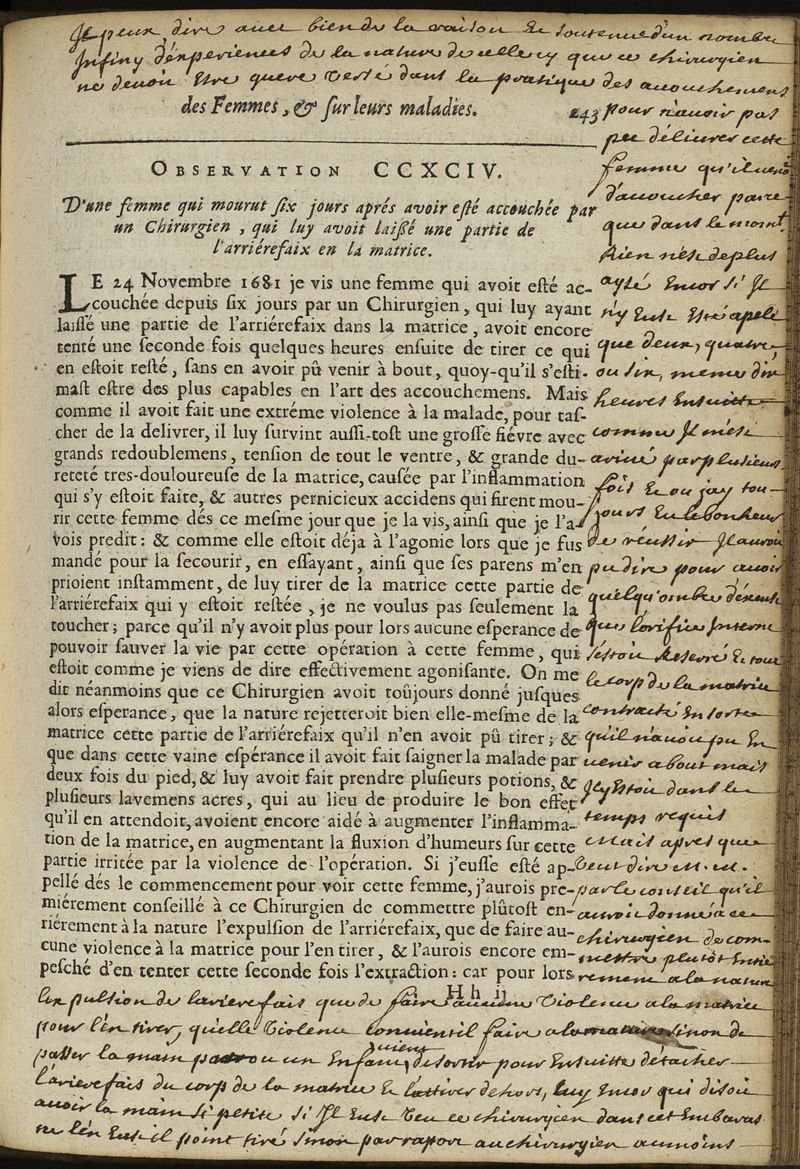 Je peux dire avec bien de la raison et soutenue d'un nombre
Infiny d'experiences de la nature de celle cy que ce chirurgien
ne devoit estre guere versé dans la pratique des acouchemens
des Femmes, & sur leurs maladies. 243
pour n'avoir pas
peu délivrer cette
femme qu'il venoit
d'acoucher parce
que dans le momt.
Rien n'est de plus
aysé Encor si Jl
n'y Eust Esté apellé
que deux, quatre,
ou six, meme dix
heures Ensuitte
comme Jl m'est
arivé par plusieurs
fois Et ou jay tou-
jours Eu le bonheur
de réussir Jl auroit
pu dire pour avoir
quelqu'ombre d'excuse
que l'orifice Interne
s'estoit Reserré Et tout
le corps de la matrice
contracté En sorte
qu'il n'avoit pu En
venir a bout mais
Jl y Estoit dans le
temps requis
Mais apres que
veut dire M. M.
par le conseil qu'il
auroit donné a ce
chirurgien de com-
mettre plutôt Entie
rement a la nature
OBSERVATION CCXCIV.
D'une femme qui mourut six jours aprés avoir esté accouchée par
un Chirurgien, qui luy avoit laissé une partie de
l'arriérefaix en la matrice.
LE 24 Novembre 1681 je vis une femme qui avoit esté ac-
couchée depuis six jours par un Chirurgien, qui luy ayant
laissé une partie de l'arriérefaix dans la matrice, avoit encore
tenté une seconde fois quelques heures ensuite de tirer ce qui
en estoit resté, sans en avoir pû venir à bout, quoy-qu'il s'esti-
mast estre des plus capables en l'art des accouchemens. Mais
comme il avoit fait une extréme violence à la malade, pour tas-
cher de la delivrer, il luy survint aussi-tost une grosse fiévre avec
grands redoublemens, tension de tout le ventre, & grande du-
reteté tres-douloureuse de la matrice, causée par l'inflammation
qui s'y estoit faite, & autres pernicieux accidens qui firent mou-
rir cette femme dés ce mesme jour que je la vis, ainsi que je l'a-
vois predit: & comme elle estoit déja à l'agonie lors que je fus
mandé pour la secourir, en essayant, ainsi que ses parens m'en
prioient instamment, de luy tirer de la matrice cette partie de
l'arriérefaix qui y estoit restée, je ne voulus pas seulement la
toucher; parce qu'il n'y avoit plus pour lors aucune esperance de
pouvoir sauver la vie par cette opération à cette femme, qui
estoit comme je viens de dire effectivement agonisante. On me
dit néanmoins que ce Chirurgien avoit toûjours donné jusques
alors esperance, que la nature rejetteroit bien elle-mesme de la
matrice cette partie de l'arriérefaix qu'il n'en avoit pû tirer; &
que dans cette vaine espérance il avoit fait saigner la malade par
deux fois du pied, & luy avoit fait prendre plusieurs potions, &
plusieurs lavemens acres, qui au lieu de produire le bon effet
qu'il en attendoit, avoient encore aidé à augmenter l'inflamma-
tion de la matrice, en augmentant la fluxion d'humeurs sur cette
partie irritée par la violence de l'opération. Si j'eusse esté ap-
pellé dés le commencement pour voir cette femme, j'aurois pre-
miérement conseillé à ce Chirurgien de commettre plûtost en-
riérement à la nature l'expulsion de l'arriérefaix, que de faire au-
cune violence à la matrice pour l'en tirer, & l'aurois encore em-
pesché d'en tenter cette seconde fois l'extraction: car pour lors
H h ij
l'expulsion de larierefais que de faire aucune violence a la matrice
pour l'en tirer, quelle violence convient il faire a la matrice sinon de
passer la main ou un Enfant vient de sortir pour Ensuitte détacher
l'arierefais du corps de la matrice Et lattirer dehors, luy Encor qui disoit
avoir la main si petite si Jl Eust veu ce chirurgien dans cet Embaras
ne l'en Eust il point tiré sinon par rapport au chirurgien aumoins